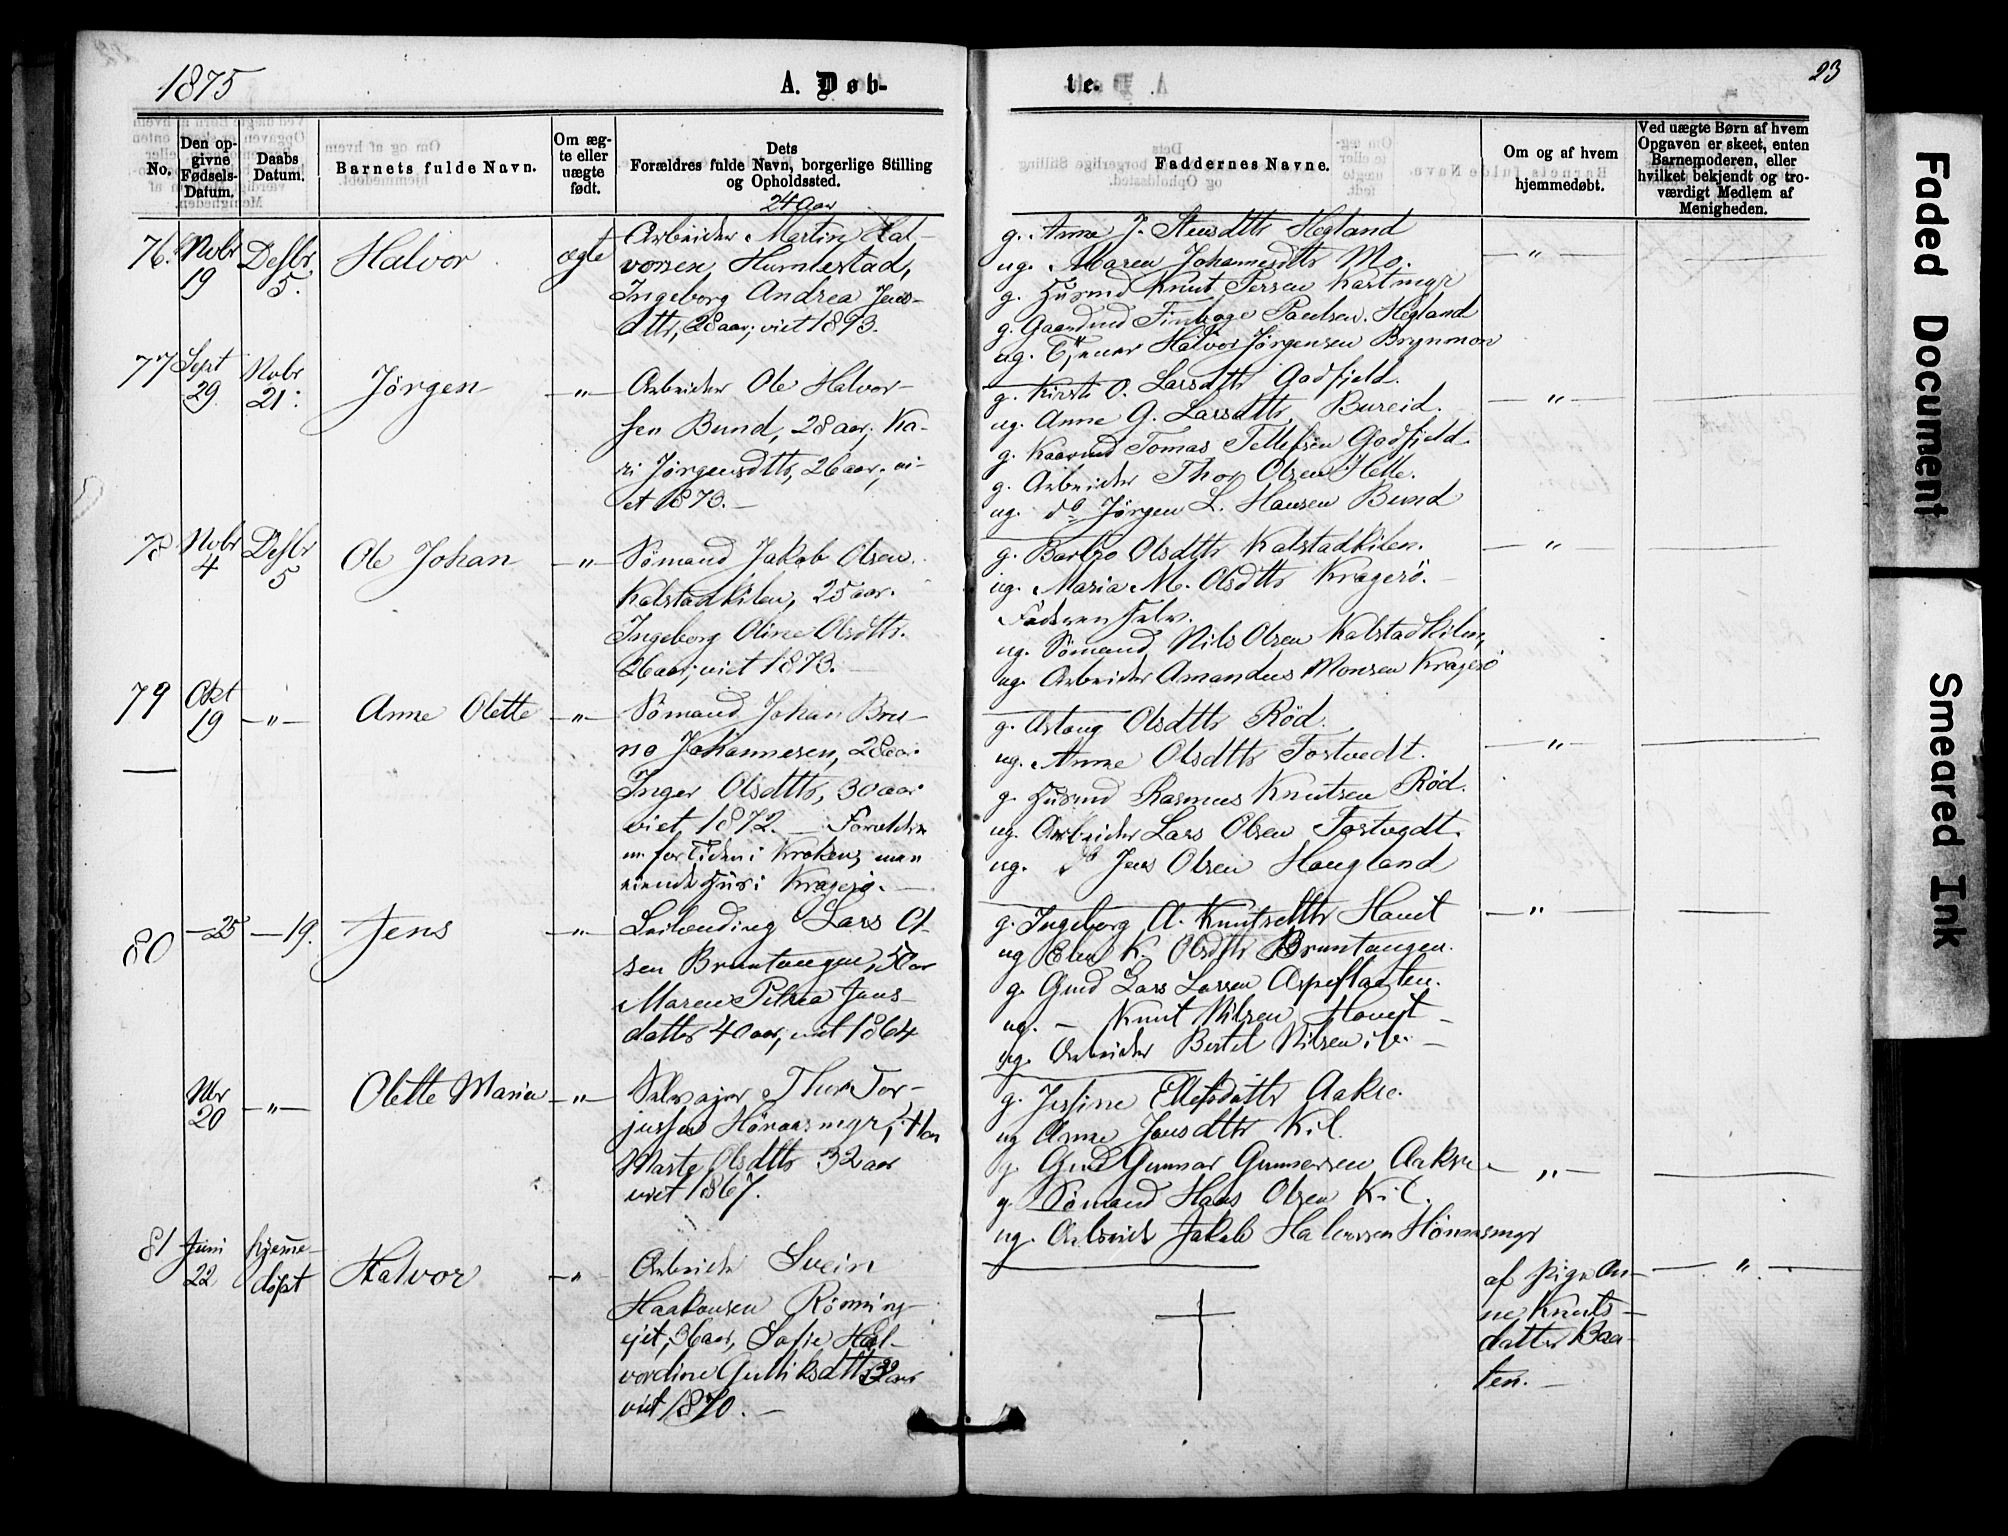 1875
A. Døb-
te.
23
No.
Den op-
givne
Fødsels-
Datum.
Daabs
Datum.
Barnets fulde Navn.
Om æg-
te eller
uægte
født.
Dets
Forældres fulde Navn, borgerlige Stilling
og Opholdssted.
Faddernes Navne.
Om og af hvem
hjemmedøbt.
Ved uægte Børn af hvem
Opgaven er skeet, enten
Barnemoderen, eller
hvilket bekjendt og tro-
værdigt Medlem af
Menigheden.
24 aar
76. Novbr 19 Desbr 5. Halvor ægte
Arbeider Martin Hal-
vorsen, Humlestad,
Ingeborg Andrea Jens-
dttr, 28 aar; viet 1873.
g. Anne J. Hegland
ug. Maren Johannesdttr Mo.
g. Husmd Knut Tersen Kartmyr
g. Gaardmd Paulsen Hegland
ug. Tjener Halvor Jørgensen Brynmon
— " —
77 Sept 29. Novbr 21. Jørgen — " —
Arbeider Ole Halvor-
sen Bund, 28 aar; Ka-
ri Jørgensdttr, 26 aar; vi-
et 1873. —
g. Kirsti O. Larsdttr Godfjeld.
ug. Anne G. Larsdttr Bureid.
g. Tomas Tellefsen Godfjeld.
g. Arbeider Thor Olsen Helle.
ug. do Jørgen L. Hansen Bund
— " —
78 Novbr 4 Desbr 5 Ole Johan — " —
Sømand Jakob Olsen
Kalstadkilen, 25 aar.
Ingeborg Oline Olsdttr.
26 aar; viet 1873. —
g. Barbro Olsdttr Kalstadkilen.
ug. Maria M. Olsdttr Kragerö. —
Faderen selv.
ug. Sömand Nils Olsen Kalstadkilen,
ug. Arbeider Amandus Monsen Kragerö
— " —
79 Okt 19 — " — Anne Olette — " —
Sömand Johan Bru-
no Johannesen, 28 aar.
Inger Olsdttr, 30 aar
viet 1872. — Forældre
ne for Tiden i Kroken, men
eiende Hus i Kragerö. —
g. Aslaug Olsdttr Röd.
ug. Anne Olsdttr Tostvedt.
g. Husmd Rasmus Knutsen Röd.
ug. Arbeider Lars Olsen Tostvedt.
ug. do Jens Olsen Haugland
— " —
80 — 25 — 19. Jens — " —
Leilending Lars Ol-
sen Bruntangen, 50 aar
Maren Petrea Jens-
datter 40 aar, viet 1864
g. Ingeborg A. Knutsdttr
ug Elen K. Olsdttr Bruntangen.
g. Gmd Lars Larsen
ug. — Knut Nilsen
ug. Arbeider Bertel Nilsen
— " —
Nbr 20 — " — Olette Maria — " —
Selveier Thor Tor-
jussen Hönaasmyr,
Marte Olsdttr 32 aar
viet 1867.
g. Jessine Ellefsdattr Aakre.
ug Anne Jensdttr Kil.
g. Gmd Gunnar Gunnersen Aakre
g. Sömand Hans Olsen Kil.
ug. Arbeid Jakob
— " —
81 Juni 22 hjemme-
döpt Halvor — " —
Arbeider Svein
Haakonsen Rönning-
ejet, 36 aar, Sofie Hal-
vordine Gulliksdttr
viet 1870. —
af Pige An-
ne Knuts-
datter Baa-
ten. —
— " —
Faded Document
Smeared Ink